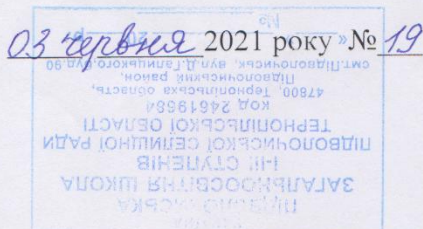 03 червня 2021 року № 19
ЗАГАЛЬНООСВІТНЯ ШКОЛА
І-ІІІ СТУПЕНІВ
ПІДВОЛОЧИСЬКОЇ СЕЛИЩНОЇ РАДИ
ТЕРНОПІЛЬСЬКОЇ ОБЛАСТІ
код 24619584
47800, Тернопільська область,
Підволочиський район,
смт.Підволочиськ, вул.Д.Галицького,буд.90